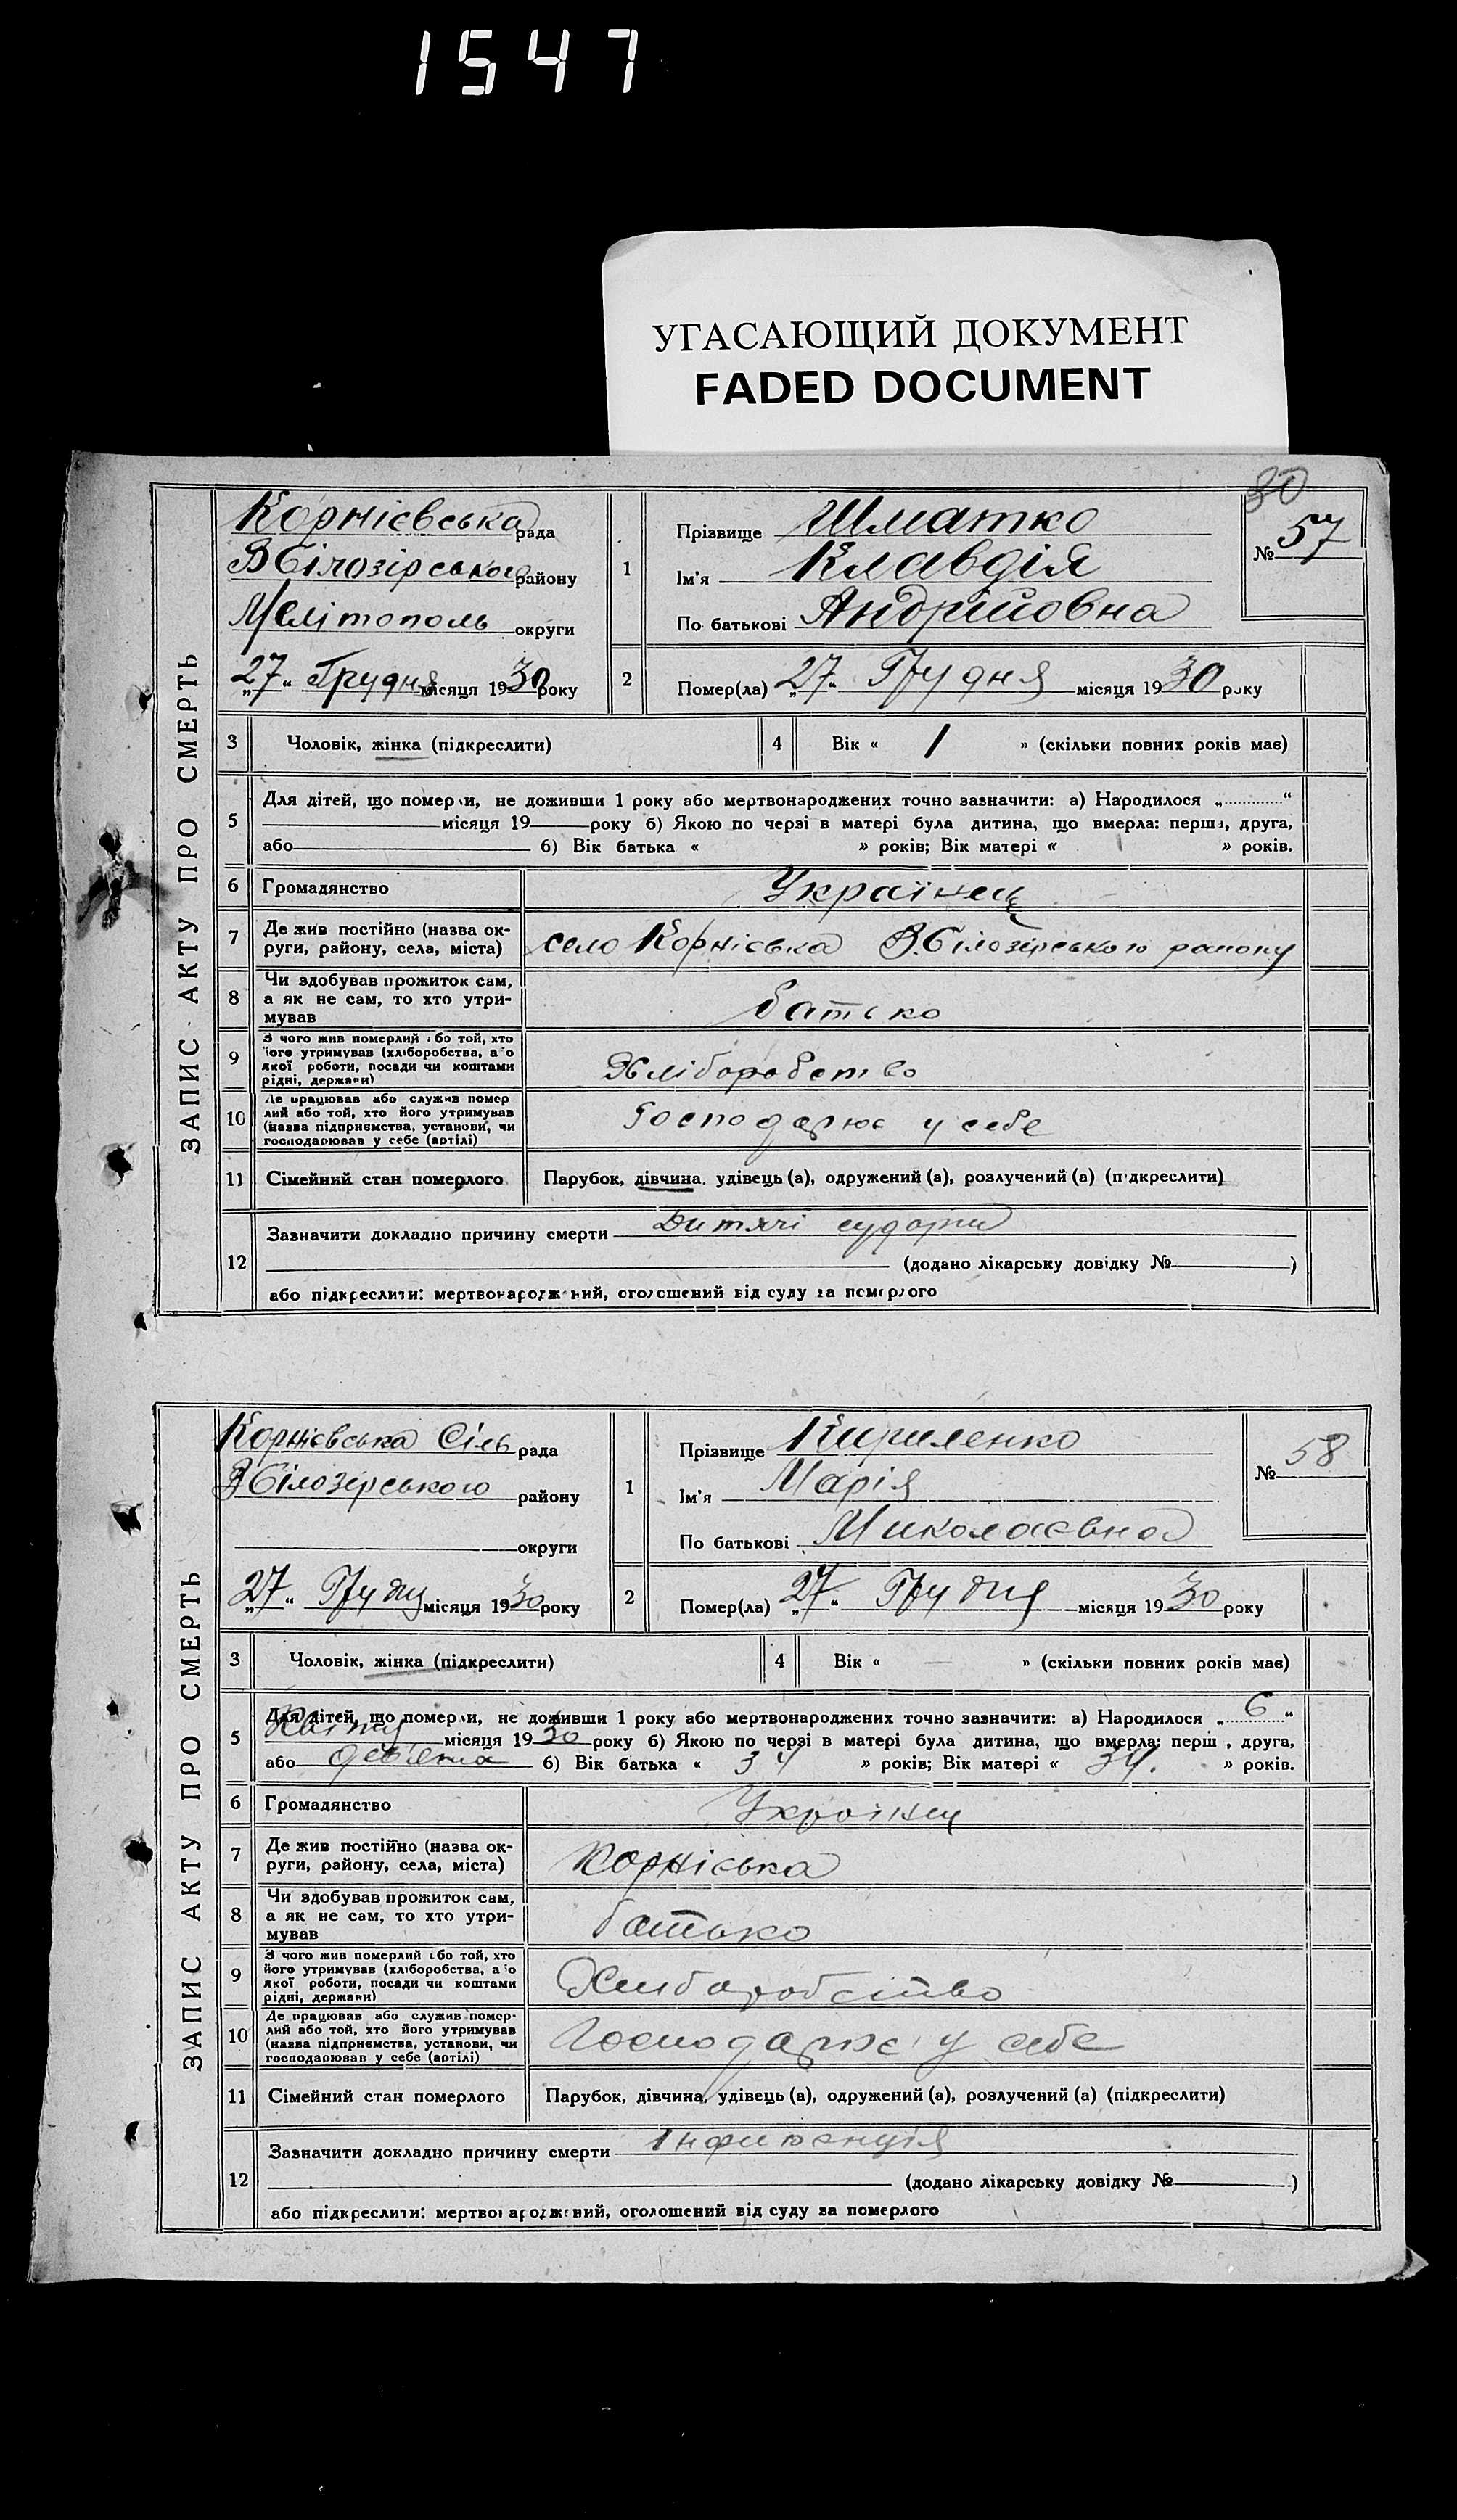 1547
УГАСАЮЩИЙ ДОКУМЕНТ
FADED DOCUMENT
30
ЗАПИС АКТУ ПРО СМЕРТЬ
Корнієвська рада
В Білозірського району
Мелітополь округи
„27“ Грудня місяця 1930 року
1
Прізвище Шматко
Ім'я Клавдія
По батькові Андрійовна
№ 57
2
Помер(ла) „27“ Грудня місяця 1930 року
3 Чоловік, жінка (підкреслити)
4 Вік « 1 » (скільки повних років має)
5
Для дітей, що померли, не доживши 1 року або мертвонароджених точно зазначити: а) Народилося „ “
місяця 19 року б) Якою по черзі в матері була дитина, що вмерла: перша, друга,
або б) Вік батька « » років; Вік матері « » років.
6 Громадянство Українець
7 Де жив постійно (назва ок-
руги, району, села, міста) село Корнієвка В.Білозірського району
8 Чи здобував прожиток сам,
а як не сам, то хто утри-
мував батько
9 З чого жив померлий або той, хто
його утримував (хліборобства, або
якої роботи, посади чи коштами
рідні, держави) Хліборобство
10 Де працював або служив помер
лий або той, хто його утримував
(назва підприємства, установи, чи
господарював у себе (артілі) Господарює у себе
11 Сімейний стан померлого Парубок, дівчина, удівець (а), одружений (а), розлучений (а) (підкреслити)
12
Зазначити докладно причину смерти Дитячі судорги
(додано лікарську довідку № )
або підкреслити: мертвонароджений, оголошений від суду за померлого
ЗАПИС АКТУ ПРО СМЕРТЬ
Корнієвська Сіль рада
В Білозірського району
округи
„27“ Грудня місяця 1930 року
1
Прізвище Кириленко
Ім'я Марія
По батькові Миколаєвна
№ 58
2
Помер(ла) „27“ Грудня місяця 1930 року
3 Чоловік, жінка (підкреслити)
4 Вік « — » (скільки повних років має)
5
Для дітей, що померли, не доживши 1 року або мертвонароджених точно зазначити: а) Народилося „ 6 “
Квітня місяця 1930 року б) Якою по черзі в матері була дитина, що вмерла: перш , друга,
або дев'ята б) Вік батька « 34 » років; Вік матері « 34. » років.
6 Громадянство Українец
7 Де жив постійно (назва ок-
руги, району, села, міста) Корнієвка
8 Чи здобував прожиток сам,
а як не сам, то хто утри-
мував батько
9 З чого жив померлий або той, хто
його утримував (хліборобства, або
якої роботи, посади чи коштами
рідні, держави) Хлиборобство
10 Де працював або служив помер-
лий або той, хто його утримував
(назва підприємства, установи, чи
господарював у себе (артілі) Господарює у себе
11 Сімейний стан померлого Парубок, дівчина, удівець (а), одружений (а), розлучений (а) (підкреслити)
12
Зазначити докладно причину смерти
(додано лікарську довідку № )
або підкреслити: мертвонароджений, оголошений від суду за померлого